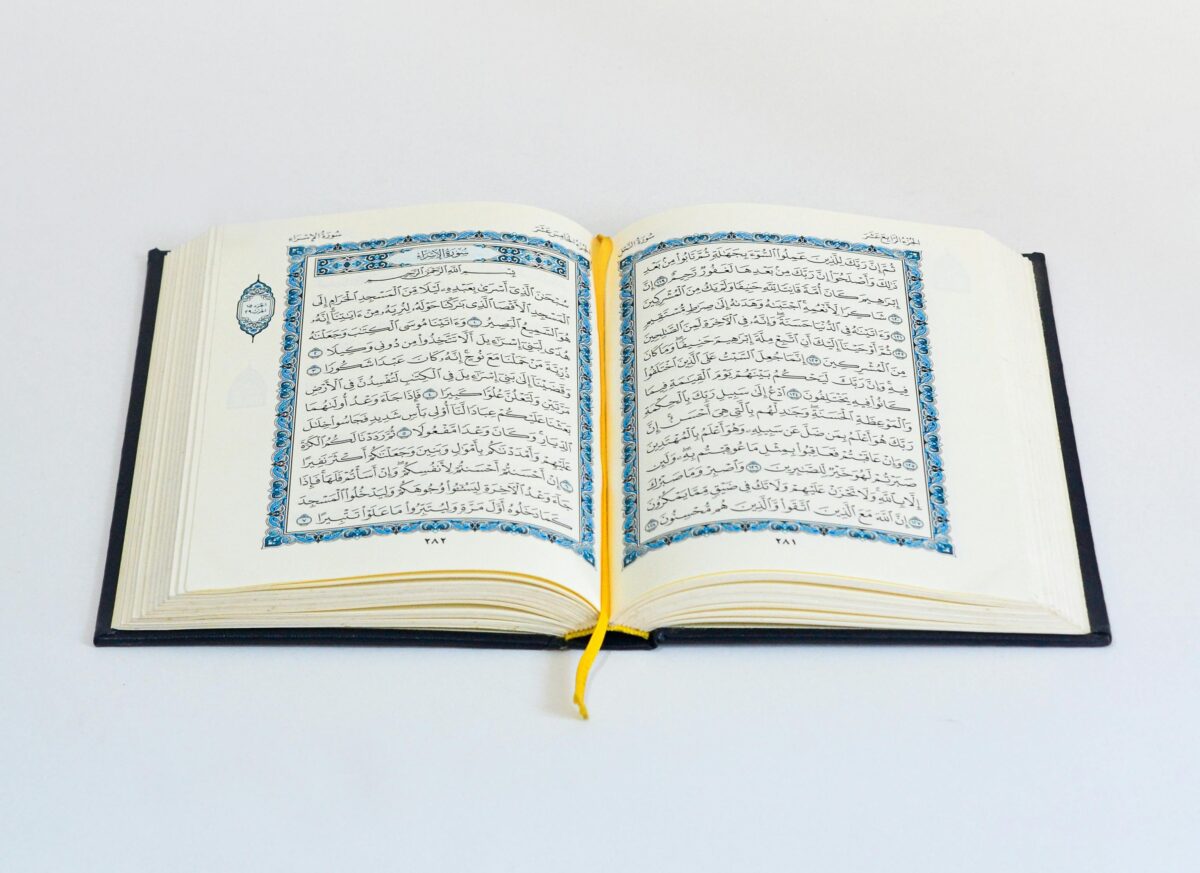 الجزء الرابع عشر
سورة النحل
ثُمَّ إِنَّ رَبَّكَ لِلَّذِينَ عَمِلُوا۟ ٱلسُّوٓءَ بِجَهَٰلَةٍ ثُمَّ تَابُوا۟ مِنۢ بَعْدِ
ذَٰلِكَ وَأَصْلَحُوٓا۟ إِنَّ رَبَّكَ مِنۢ بَعْدِهَا لَغَفُورٌ رَّحِيمٌ ١١٩ إِنَّ
إِبْرَٰهِيمَ كَانَ أُمَّةً قَانِتًا لِّلَّهِ حَنِيفًا وَلَمْ يَكُ مِنَ ٱلْمُشْرِكِينَ
١٢٠ شَاكِرًا لِّأَنْعُمِهِ ۚ ٱجْتَبَىٰهُ وَهَدَىٰهُ إِلَىٰ صِرَٰطٍ مُّسْتَقِيمٍ
١٢١ وَءَاتَيْنَٰهُ فِى ٱلدُّنْيَا حَسَنَةً ۖ وَإِنَّهُۥ فِى ٱلْءَاخِرَةِ لَمِنَ ٱلصَّٰلِحِينَ
١٢٢ ثُمَّ أَوْحَيْنَآ إِلَيْكَ أَنِ ٱتَّبِعْ مِلَّةَ إِبْرَٰهِيمَ حَنِيفًا ۖ وَمَا كَانَ
مِنَ ٱلْمُشْرِكِينَ ١٢٣ إِنَّمَا جُعِلَ ٱلسَّبْتُ عَلَى ٱلَّذِينَ ٱخْتَلَفُوا۟
فِيهِ ۚ وَإِنَّ رَبَّكَ لَيَحْكُمُ بَيْنَهُمْ يَوْمَ ٱلْقِيَٰمَةِ فِيمَا
كَانُوا۟ فِيهِ يَخْتَلِفُونَ ١٢٤ ٱدْعُ إِلَىٰ سَبِيلِ رَبِّكَ بِٱلْحِكْمَةِ
وَٱلْمَوْعِظَةِ ٱلْحَسَنَةِ ۖ وَجَٰدِلْهُم بِٱلَّتِى هِىَ أَحْسَنُ ۚ إِنَّ
رَبَّكَ هُوَ أَعْلَمُ بِمَن ضَلَّ عَن سَبِيلِهِۦ ۖ وَهُوَ أَعْلَمُ بِٱلْمُهْتَدِينَ
١٢٥ وَإِنْ عَاقَبْتُمْ فَعَاقِبُوا۟ بِمِثْلِ مَا عُوقِبْتُم بِهِۦ ۖ وَلَئِن
صَبَرْتُمْ لَهُوَ خَيْرٌ لِّلصَّٰبِرِينَ ١٢٦ وَٱصْبِرْ وَمَا صَبْرُكَ
إِلَّا بِٱللَّهِ ۚ وَلَا تَحْزَنْ عَلَيْهِمْ وَلَا تَكُ فِى ضَيْقٍ مِّمَّا يَمْكُرُونَ
١٢٧ إِنَّ ٱللَّهَ مَعَ ٱلَّذِينَ ٱتَّقَوا۟ وَّٱلَّذِينَ هُم مُّحْسِنُونَ ١٢٨
٢٨١
سورة الإسراء
سورة الإسراء
بِسْمِ ٱللَّهِ ٱلرَّحْمَٰنِ ٱلرَّحِيمِ
سُبْحَٰنَ ٱلَّذِىٓ أَسْرَىٰ بِعَبْدِهِۦ لَيْلًا مِّنَ ٱلْمَسْجِدِ ٱلْحَرَامِ إِلَى
ٱلْمَسْجِدِ ٱلْأَقْصَا ٱلَّذِى بَٰرَكْنَا حَوْلَهُۥ لِنُرِيَهُۥ مِنْ ءَايَٰتِنَآ ۚ إِنَّهُۥ
هُوَ ٱلسَّمِيعُ ٱلْبَصِيرُ ١ وَءَاتَيْنَا مُوسَى ٱلْكِتَٰبَ وَجَعَلْنَٰهُ
هُدًى لِّبَنِىٓ إِسْرَٰٓءِيلَ أَلَّا تَتَّخِذُوا۟ مِن دُونِى وَكِيلًا ٢
ذُرِّيَّةَ مَنْ حَمَلْنَا مَعَ نُوحٍ ۚ إِنَّهُۥ كَانَ عَبْدًا شَكُورًا ٣
وَقَضَيْنَآ إِلَىٰ بَنِىٓ إِسْرَٰٓءِيلَ فِى ٱلْكِتَٰبِ لَتُفْسِدُنَّ فِى ٱلْأَرْضِ
مَرَّتَيْنِ وَلَتَعْلُنَّ عُلُوًّا كَبِيرًا ٤ فَإِذَا جَآءَ وَعْدُ أُولَىٰهُمَا
بَعَثْنَا عَلَيْكُمْ عِبَادًا لَّنَآ أُو۟لِى بَأْسٍ شَدِيدٍ فَجَاسُوا۟ خِلَٰلَ
ٱلدِّيَارِ ۚ وَكَانَ وَعْدًا مَّفْعُولًا ٥ ثُمَّ رَدَدْنَا لَكُمُ ٱلْكَرَّةَ
عَلَيْهِمْ وَأَمْدَدْنَٰكُم بِأَمْوَٰلٍ وَبَنِينَ وَجَعَلْنَٰكُمْ أَكْثَرَ نَفِيرًا
٦ إِنْ أَحْسَنتُمْ أَحْسَنتُمْ لِأَنفُسِكُمْ ۖ وَإِنْ أَسَأْتُمْ فَلَهَا ۚ فَإِذَا
جَآءَ وَعْدُ ٱلْءَاخِرَةِ لِيَسُۥٓـُٔوا۟ وُجُوهَكُمْ وَلِيَدْخُلُوا۟ ٱلْمَسْجِدَ
كَمَا دَخَلُوهُ أَوَّلَ مَرَّةٍ وَلِيُتَبِّرُوا۟ مَا عَلَوْا۟ تَتْبِيرًا ٧
٢٨٢